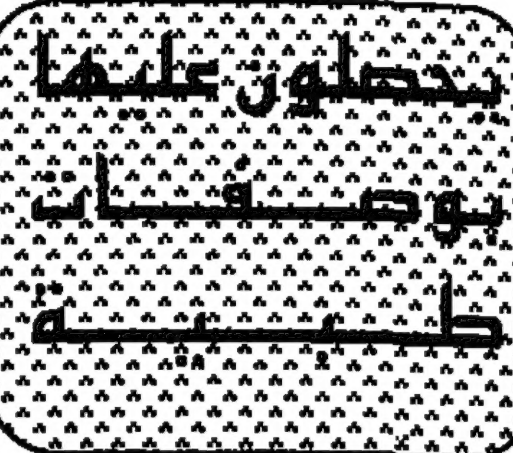 يحصلون عليها
بوصفات
طبية